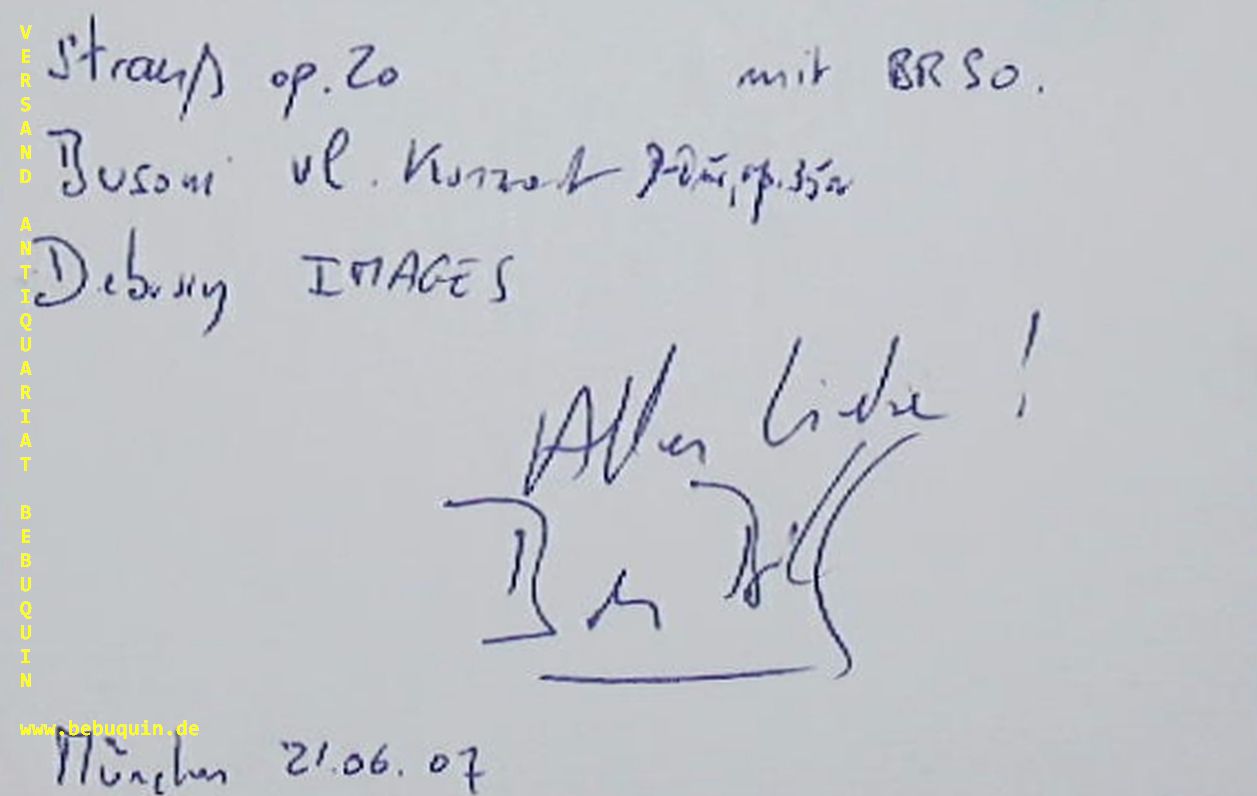 Strauß op. 20 mit BRSO.
Busoni vl. Konzert D-Dur, op. 35a
Debussy IMAGES
Alles Liebe!
München 21.06.07
VERSAND ANTIQUARIAT BEBUQUIN
www.bebuquin.de